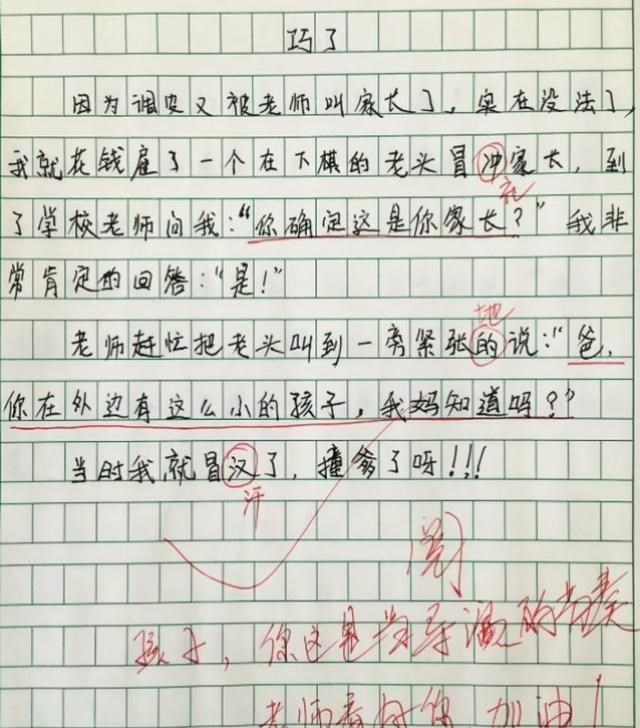 巧了
因为调皮又被老师叫家长了，实在没法了，
我就花钱雇了一个在下棋的老头冒冲家长，到
充
了学校老师问我：“你确定这是你家长？”我非
常肯定的回答：“是！”
地
老师赶忙把老头叫到一旁紧张的说：“爸，
你在外边有这么小的孩子，我妈知道吗？”
当时我就冒汉了，撞爹了呀！！！
汗
阅
孩子，你这是当导演的节奏
老师看好你 加油！